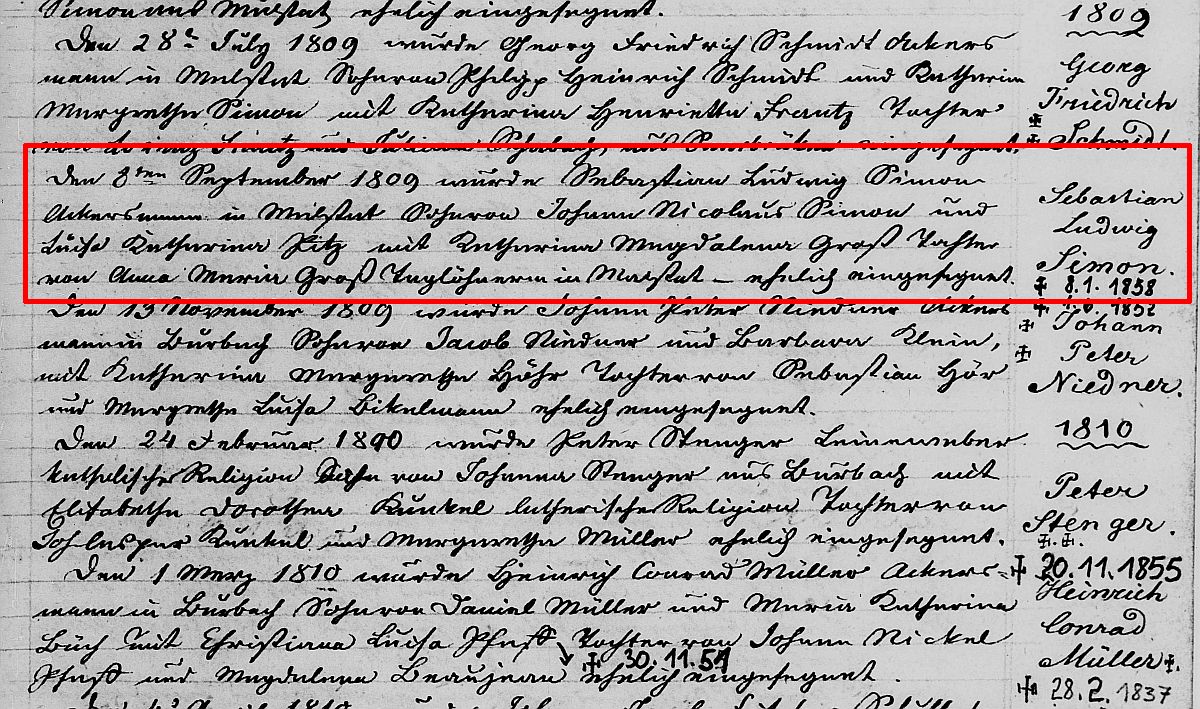 Simon aus Malstat ehelich eingesegnet.
1809
Den 28t July 1809 wurde Georg Friedrich Schmidt Ackers
mann in Malstat Sohn von Philipp Heinrich Schmidt und Katharina
Margretha Simon mit Katharina Henrietta Frantz Tochter
Georg
Friedrich
Schmidt.
von Frantz und Juliana aus eingesegnet.
Den 8ten September 1809 wurde Sebastian Ludwig Simon
Ackersmann in Malstat Sohn von Johann Nicolaus Simon und
Luisa Katharina Pitz mit Katharina Magdalena Groß Tochter
von Anna Maria Groß Taglöhnerin in Malstat – ehelich eingesegnet.
Sebastian
Ludwig
Simon.
8.1.1858
1852
Den 13 November 1809 wurde Johann Peter Niedner Ackers
mann in Burbach Sohn von Jacob Niedner und Barbara Klein,
mit Katharina Margaretha Höhr Tochter von Sebastian Hör
und Margretha Luisa Bikelmann ehelich eingesegnet.
Johann
Peter
Niedner.
1810
Den 24 Februar 1810 wurde Peter Stenger Leineweber
katholische Religion Sohn von Johanna Stenger aus Burbach mit
Elisabetha Dorothea Kunkel lutherische Religion Tochter von
Joh Caspar Kunkel und Margaretha Müller ehelich eingesegnet.
Peter
Stenger.
20.11.1855
Den 1 Merz 1810 wurde Heinrich Conrad Müller Ackers-
mann in Burbach Sohn von Daniel Müller und Maria Katharina
Büch mit Christiana Luisa Pfaff Tochter von Johann Nickel
30.11.51
Pfaff und Magdalena Beaujean ehelich eingesegnet.
Heinrich
Conrad
Müller
28.2.1837